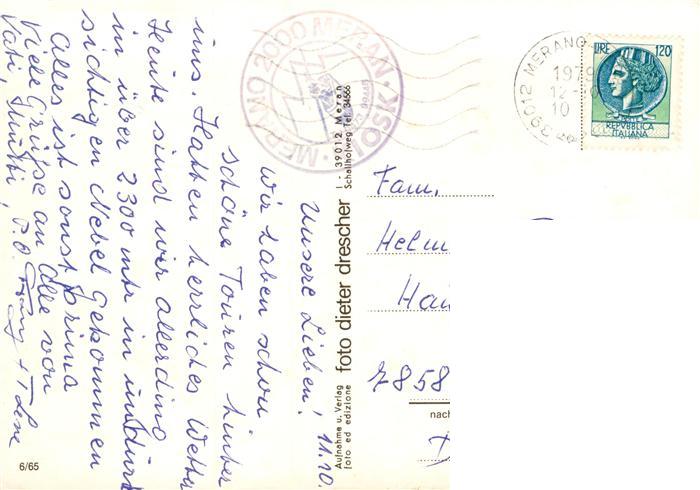 Unsere Lieben! 11.10.
Wir haben schon
schöne Touren hinter
uns. Hatten herrliches Wetter
Heute sind wir allerdins
in über 2300 mtr in undurch
sichtigen Nebel gekommen
Alles ist sonst prima
Viele Grüße an Alle von
Vati, Mutti, P.O. Franz + Lene
6/65
MERANO 2000 MERAN
KIOSK
Aufnahme u. Verlag
foto ed edizione
foto dieter drescher
I - 39012 Meran
Schallhofweg Tel. 34566
39012 MERANO
1979
12-10
10
LIRE 120
REPVBBLICA
ITALIANA
Fam.
Helm
Hai
7858
nach
D